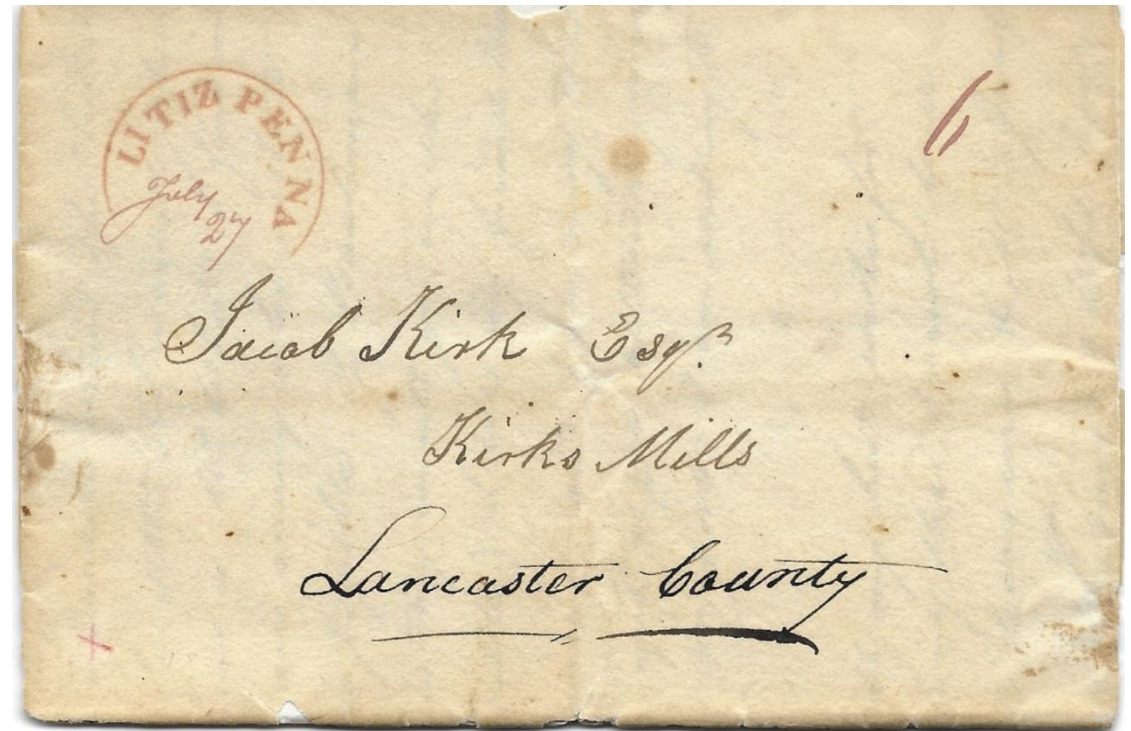 LITIZ PENNA
July
27
6
Jacob Kirk Esqr.
Kirks Mills
Lancaster County
x